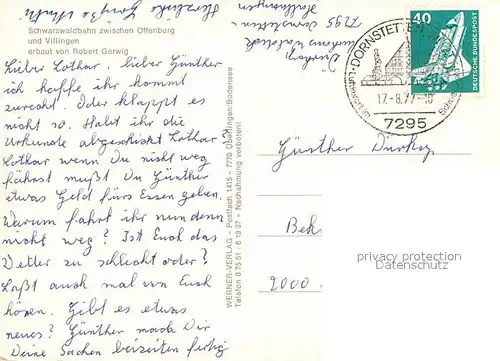 Schwarzwaldbahn zwischen Offenburg
und Villingen
erbaut von Robert Gerwig
Lieber Lothar, lieber Günther
ich hoffe ihr kommt
zurecht. Oder klappt es
nicht so. Habt ihr die
Urkunde abgeschickt Lothar?
Lothar wenn Du nicht weg
fährst mußt Du Günther
etwas Geld fürs Essen geben.
Warum fahrt ihr nun denn
nicht weg? Ist Euch das
Wetter zu schlecht oder?
Laßt auch mal von Euch
hören. Gibt es etwas
neues? Günther mache Dir
Deine Sachen beizeiten fertig
Herzliche Grüße Mutti
7295 Dornstetten-
Hallwangen
WERNER-VERLAG - Postfach 1415 - 7770 Überlingen/Bodensee
Telefon 0 75 51 / 6 19 37 - Nachahmung verboten!
DORNSTETTEN
Luftkurort im
17.-8.77-10
7295
40
DEUTSCHE BUNDESPOST
Günther
2000
privacy protection
Datenschutz